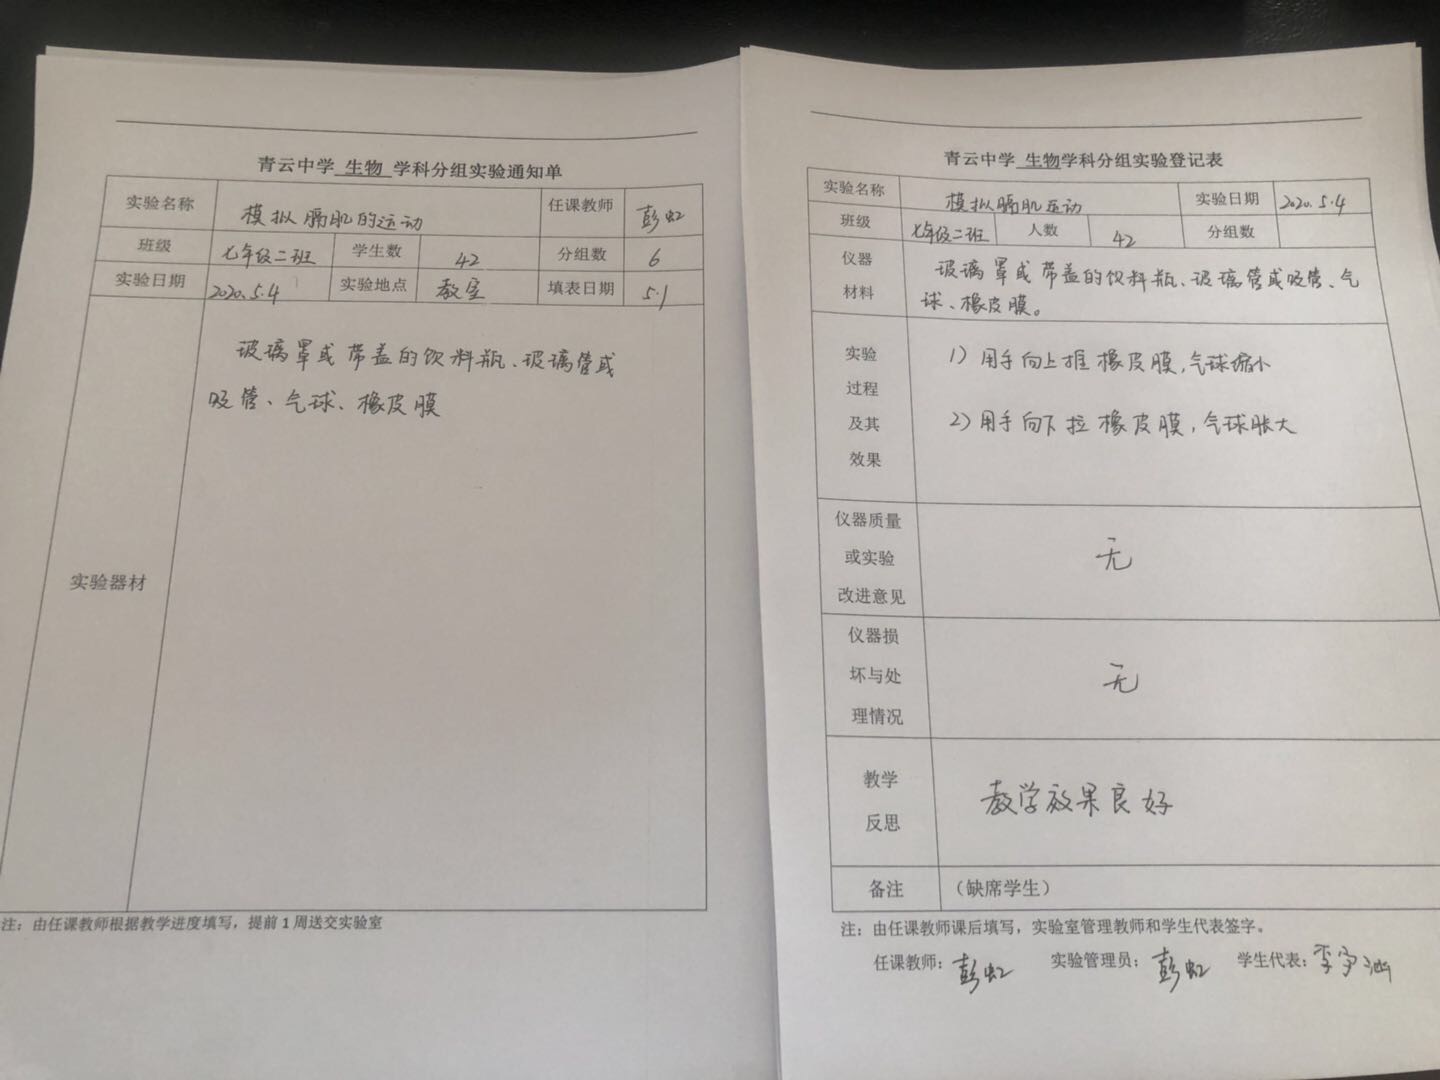 青云中学 生物 学科分组实验通知单
实验名称 模拟膈肌的运动 任课教师 彭虹
班级 七年级二班 学生数 42 分组数 6
实验日期 2020.5.4 实验地点 教室 填表日期 5.1
玻璃罩或带盖的饮料瓶、玻璃管或
吸管、气球、橡皮膜
实验器材
注：由任课教师根据教学进度填写，提前1周送交实验室
青云中学 生物学科分组实验登记表
实验名称 模拟膈肌运动 实验日期 2020.5.4
班级 七年级二班 人数 42 分组数
仪器 玻璃罩或带盖的饮料瓶、玻璃管或吸管、气
材料 球、橡皮膜。
实验 1）用手向上推橡皮膜，气球缩小
过程
及其 2）用手向下拉橡皮膜，气球胀大
效果
仪器质量
或实验 无
改进意见
仪器损
坏与处 无
理情况
教学 教学效果良好
反思
备注 （缺席学生）
注：由任课教师课后填写，实验室管理教师和学生代表签字。
任课教师：彭虹 实验管理员：彭虹 学生代表：李